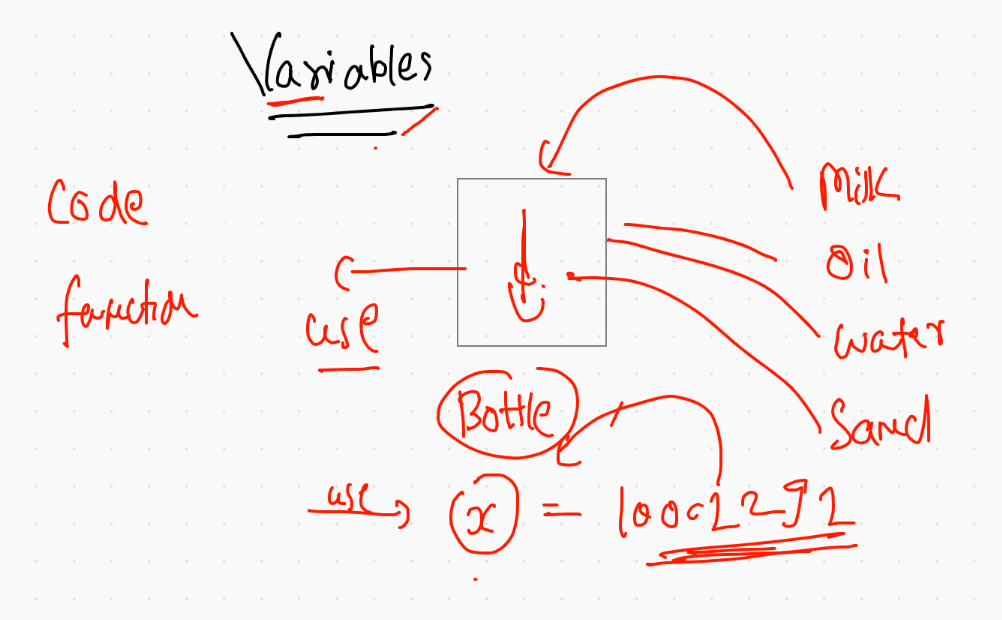 Variables
Code
function
use
Milk
Oil
water
Sand
Bottle
use
x =